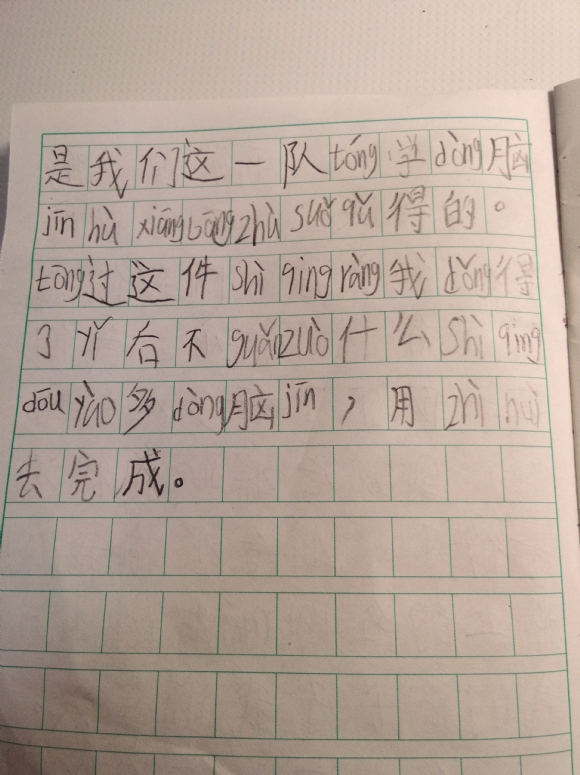 是我们这一队tóng学dòng脑
jīn hù xiāng bāng zhù suǒ qǔ 得的。
tōng过这件shì qing ràng我dǒng得
了yǐ后不guǎn zuò什么Shì qing
dōu yào多dòng脑jīn，用zhì huì
去完成。